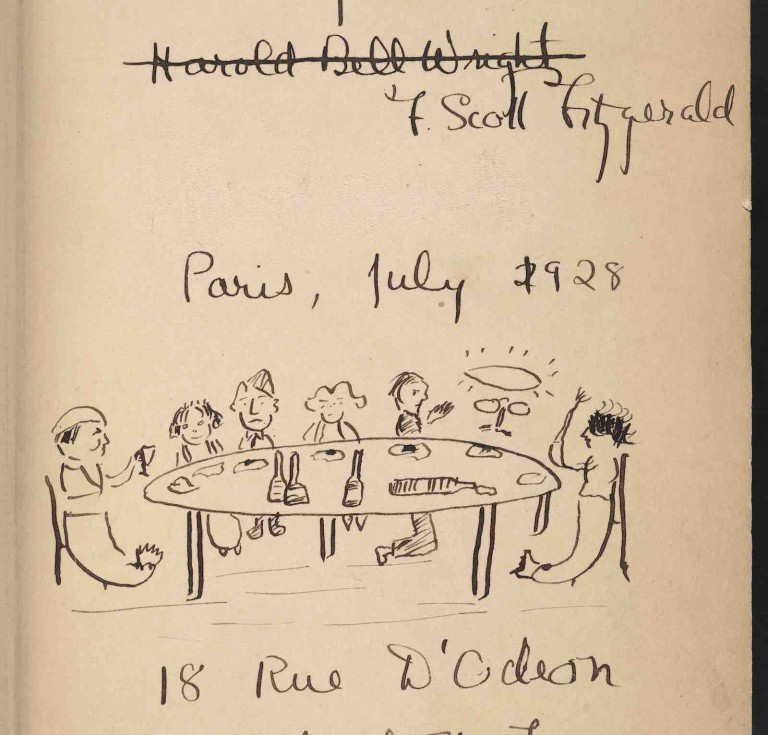 Harold Bell Wright
F. Scott Fitzgerald
Paris, July 1928
18 Rue D'Odeon